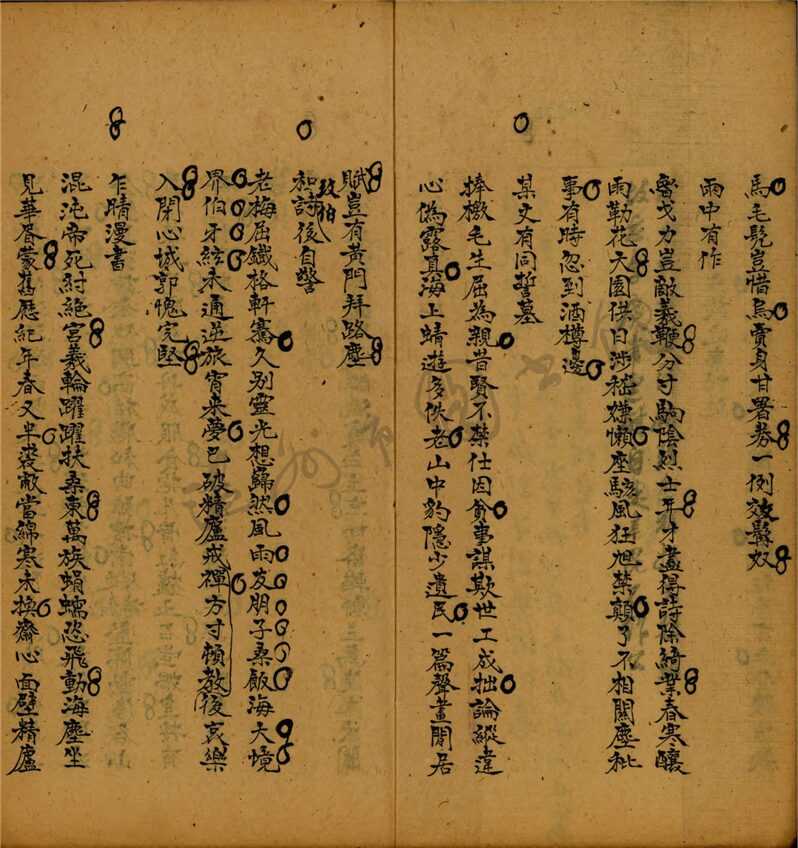 馬毛髡豈惜烏賣身甘署券一例效髯奴
雨中有作
魯戈力豈敵羲鞭分寸駒陰烈士年才盡得詩除綺業春寒釀
雨勒花天園供日涉嵇嫌懶座駭風狂旭禁顛了不相關塵秕
事有時忽到酒樽邊
某丈有同誓墓
捧檄毛生屈為親昔賢不禁仕因貧事謀欺世工成拙論縱違
心偽露真海上蜻遊多佚老山中豹隱少遺民一篇聲畫閒居
賦豈有黃門拜路塵
和詩後自警
老梅屈鐵格軒騫久別靈光想巋然風雨友朋子桑飯海天境
界伯牙絃未通逆旅宵來夢已破精廬戒禪方寸賴教後哀樂
入閉心城郭愧完堅
乍晴漫書
混沌帝死紂絕宮羲輪躍躍扶桑東萬族蜎蠕恣飛動海塵坐
見華胥蒙舊厯紀年春又半裘敝當綿寒未換齋心面壁精廬